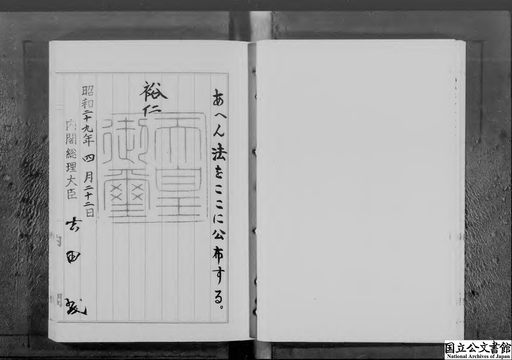 あへん法をここに公布する。
裕仁
天皇
御璽
昭和二十九年四月二十二日
内閣総理大臣 吉田茂
国立公文書館
National Archives of Japan